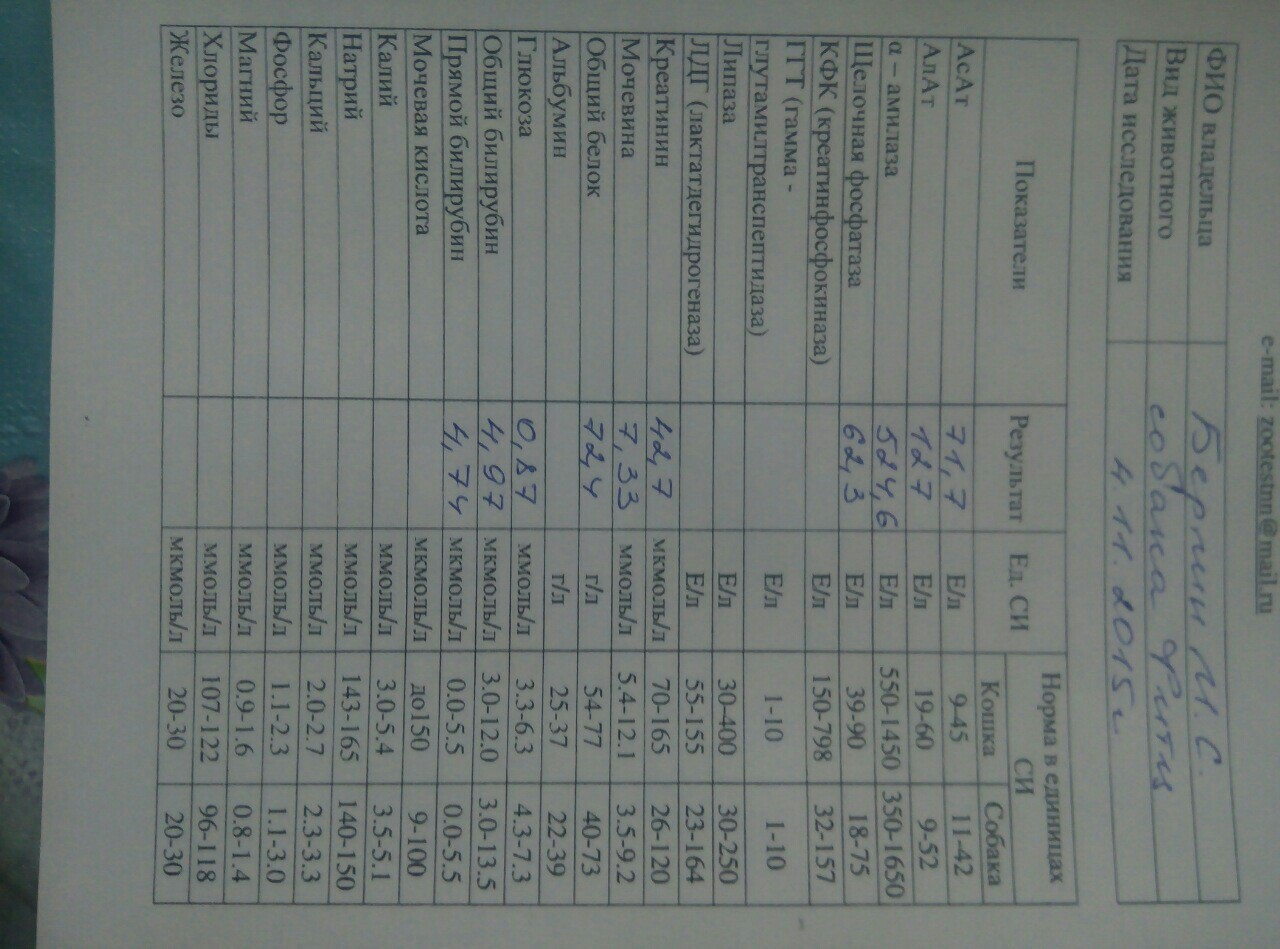 e-mail: zootestnn@mail.ru
ФИО владельца Берлин М. С.
Вид животного собака Фитц
Дата исследования 4. 11. 2015 г
Показатели Результат Ед. СИ Норма в единицах СИ
Кошка Собака
АсАт 71,7 Е/л 9-45 11-42
АлАт 127 Е/л 19-60 9-52
α – амилаза 524,6 Е/л 550-1450 350-1650
Щелочная фосфатаза 62,3 Е/л 39-90 18-75
КФК (креатинфосфокиназа) Е/л 150-798 32-157
ГГТ (гамма -
глутамилтранспептидаза) Е/л 1-10 1-10
Липаза Е/л 30-400 30-250
ЛДГ (лактатдегидрогеназа) Е/л 55-155 23-164
Креатинин 42,7 мкмоль/л 70-165 26-120
Мочевина 7,33 ммоль/л 5.4-12.1 3.5-9.2
Общий белок 72,4 г/л 54-77 40-73
Альбумин г/л 25-37 22-39
Глюкоза 0,87 ммоль/л 3.3-6.3 4.3-7.3
Общий билирубин 4,97 мкмоль/л 3.0-12.0 3.0-13.5
Прямой билирубин 4,774 мкмоль/л 0.0-5.5 0.0-5.5
Мочевая кислота мкмоль/л до150 9-100
Калий ммоль/л 3.0-5.4 3.5-5.1
Натрий ммоль/л 143-165 140-150
Кальций ммоль/л 2.0-2.7 2.3-3.3
Фосфор ммоль/л 1.1-2.3 1.1-3.0
Магний ммоль/л 0.9-1.6 0.8-1.4
Хлориды ммоль/л 107-122 96-118
Железо мкмоль/л 20-30 20-30